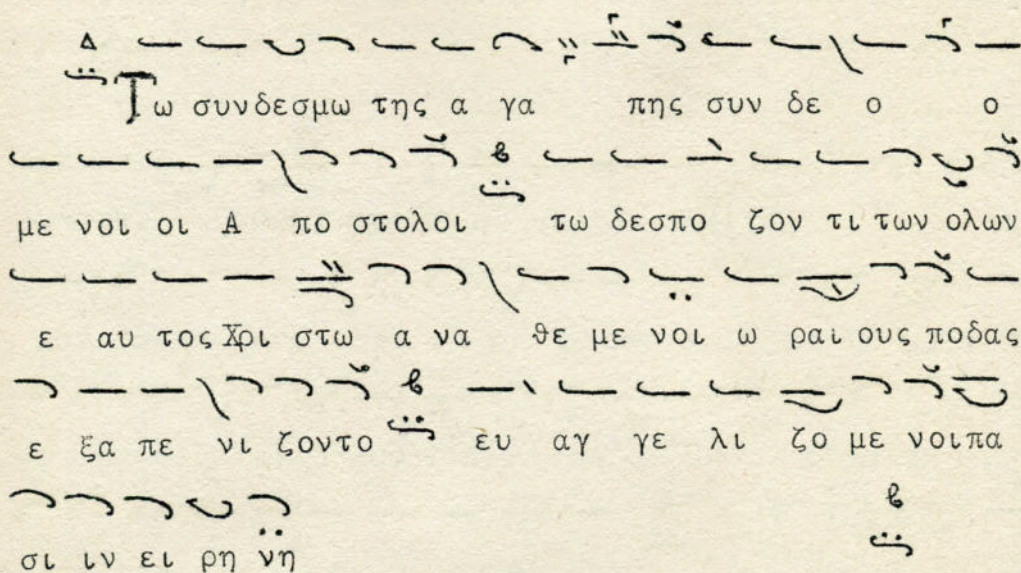 Τω συνδεσμω της α γα πης συν δε ο ο
με νοι οι Α πο στολοι τω δεσπο ζον τι των ολων
ε αυ τος Χρι στω α να θε με νοι ω ραι ους ποδας
ε ξα πε νι ζοντο ευ αγ γε λι ζο με νοι πα
σι ιν ει ρη νη